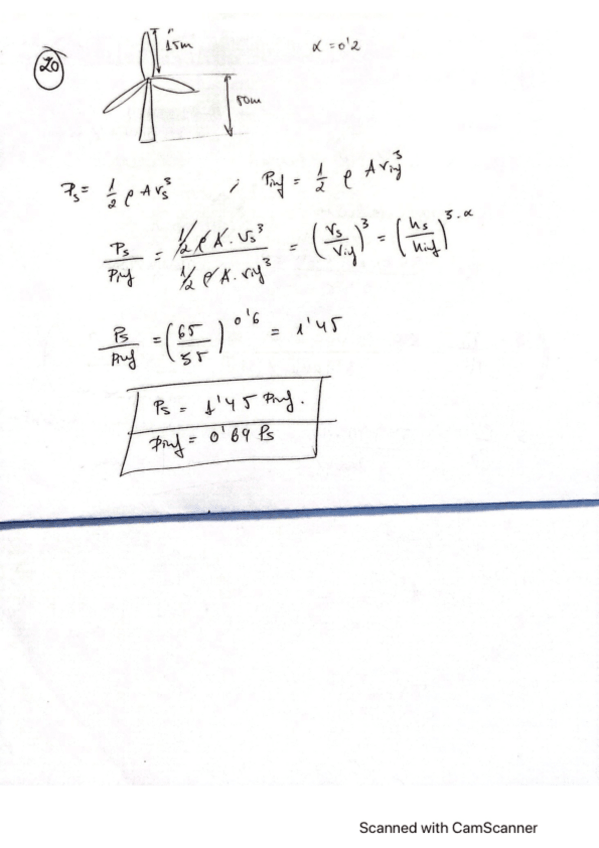 20
15m
α = 0'2
50m
Ps = 1/2 ρ A vs³ ; Pinf = 1/2 ρ A vinf³
Ps/Pinf = (1/2 ρ A · vs³)/(1/2 ρ A · vinf³) = (vs/vinf)³ = (hs/hinf)^3·α
Ps/Pinf = (65/35)^0'6 = 1'45
Ps = 1'45 Pinf.
Pinf = 0'69 Ps
Scanned with CamScanner